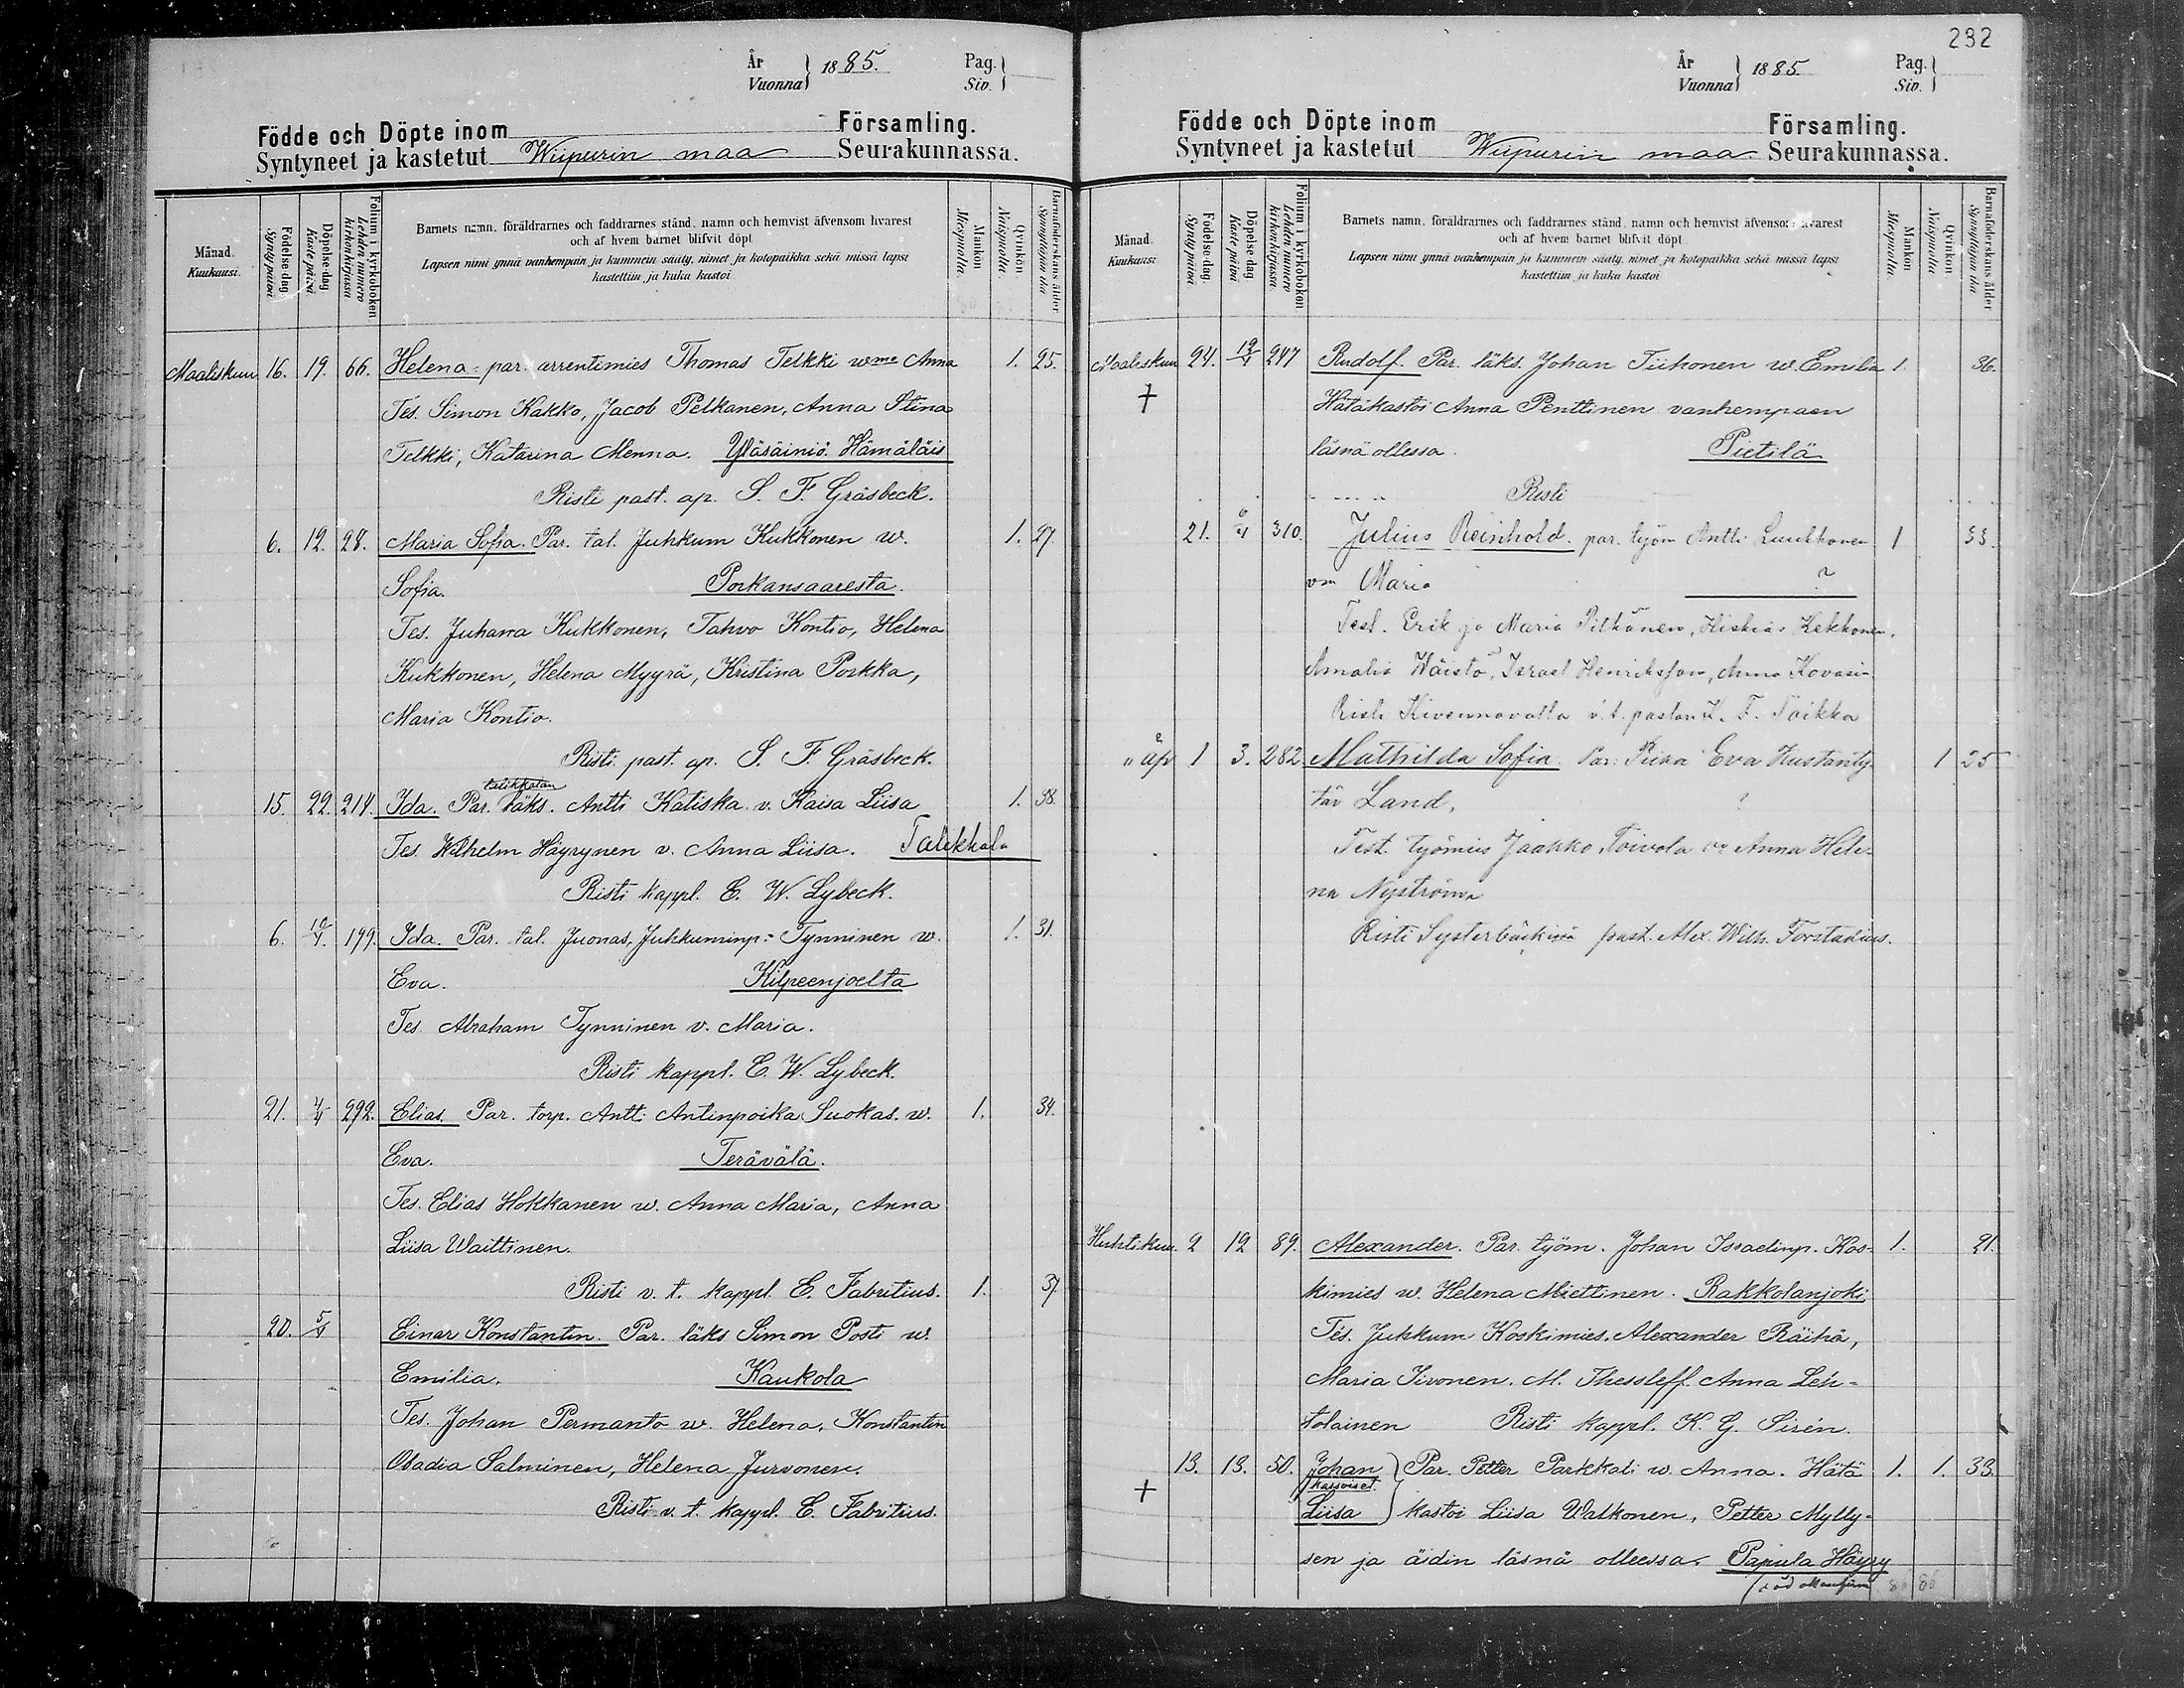 År
Vuonna } 1885.
Pag.
Siv.
Födde och Döpte inom Församling.
Syntyneet ja kastetut Wiipurin maa Seurakunnassa.
Månad.
Kuukausi.
Födelse dag.
Synty päivä
Döpelse dag
Kaste päivä
Folium i kyrkoboken
Lehden numero
kirkonkirjassa
Barnets namn, föräldrarnes och faddrarnes stånd, namn och hemvist äfvensom hvarest
och af hvem barnet blifvit döpt
Lapsen nimi ynnä vanhempain ja kummein sääty, nimet ja kotopaikka sekä missä lapsi
kastettiin ja kuka kastoi
Mankön
Miespuolia.
Qvinkön
Naispuolia.
Barnaföderskans ålder
Synnyttäjän ikä
Maaliskuu 16. 19. 66. Helena. par. arrentimies Thomas Telkki wme Anna 1. 25.
Tes. Simon Kakko, Jacob Pelkanen, Anna Stina
Telkki, Katarina Menna. Yläsäiniö. Hämäläis
Risti past. ap. S. F. Gräsbeck.
6. 12. 28. Maria Sofia. Par. tal. Juhkum Kukkonen w. 1. 27.
Sofia. Porkansaaresta.
Tes. Juhana Kukkonen, Tahvo Kontio, Helena
Kukkonen, Helena Myyrä, Kristina Porkka,
Maria Kontio.
Risti past. ap. S. F. Gräsbeck.
talikkalan
15. 22. 214. Ida. Par. läks. Antti Katiska v. Kaisa Liisa 1. 38.
Tes. Wilhelm Häyrynen v. Anna Liisa. Talikkala
Risti kappl. E. W. Lybeck.
6. 10/4. 199. Ida. Par. tal. Juonas, Juhkuminp: Tynninen w. 1. 31.
Eva. Kilpeenjoelta
Tes. Abraham Tynninen v. Maria.
Risti kappl. E. W. Lybeck.
21. 4/4 292. Elias. Par. torp. Antti Antinpoika Suokas. w. 1. 34.
Eva. Terävälä.
Tes. Elias Hokkanen w. Anna Maria, Anna
Liisa Waittinen.
Risti v. t. kappl. E. Fabritius. 1. 37.
20. 5/4 Einar Konstantin. Par. läks Simon Posti w.
Emilia. Kaukola
Tes. Johan Permanto w. Helena, Konstantin
Obadia Salminen, Helena Jurvonen.
Risti v. t. kappl. E. Fabritius.
232
År
Vuonna } 1885.
Pag.
Siv.
Födde och Döpte inom Församling.
Syntyneet ja kastetut Wiipurin maa Seurakunnassa.
Månad.
Kuukausi.
Födelse dag.
Synty päivä
Döpelse dag.
Kaste päivä
Folium i kyrkoboken
Lehden numero
kirkonkirjassa.
Barnets namn, föräldrarnes och faddrarnes stånd, namn och hemvist äfvensom hvarest
och af hvem barnet blifvit döpt
Lapsen nimi ynnä vanhempain ja kummein sääty, nimet ja kotopaikka sekä missä lapsi
kastettiin ja kuka kastoi
Mankön
Miespuolia.
Qvinkön
Naispuolia
Barnaföderskans ålder
Synnyttäjän ikä
Maaliskuu 24. 12/4 247 Rudolf. Par. läks. Johan Tiihonen w. Emilia 1. 36.
+ Hätäkastoi Anna Penttinen vanhempaen
läsnä ollessa. Pietilä
Risti
21. 6/4 310. Julius Reinhold. par. työm Antti Luukkonen 1 33.
vm Maria ?
Test. Erik ja Maria Pitkänen, Hiskias Kekkonen,
Amalia Wäistö, Israel Henriksson, Anna Kovasin
Risti Kivennavalla v.t. pastori K. F. Toikka
" äp 1 3. 282 Mathilda Sofia. Par: Piika Eva Kustanty- 1 25
tär Land, ?
Test. työmies Jaakko Toivola vm Anna Hele-
na Nyströmn
Risti Systerbäckissä past. Alex. Wilh. Forstadius.
Huhtikuu. 2 12 89. Alexander. Par. työm. Johan Israelinp. Kos- 1. 21.
kimies w. Helena Miettinen. Rakkolanjoki
Tés. Juhkum Koskimies, Alexander Räihä,
Maria Iivonen, M. Thessleff. Anna Leh-
tolainen Risti kappl. K. G. Sirén.
13. 13. 50. Johan } Par. Petter Parkkali w. Anna. Hätä 1. 1. 33.
kaksoiset.
+ Liisa } kastoi Liisa Walkonen, Petter Mylly-
sen ja äidin läsnä olleessa. Papula Häyry
80 86